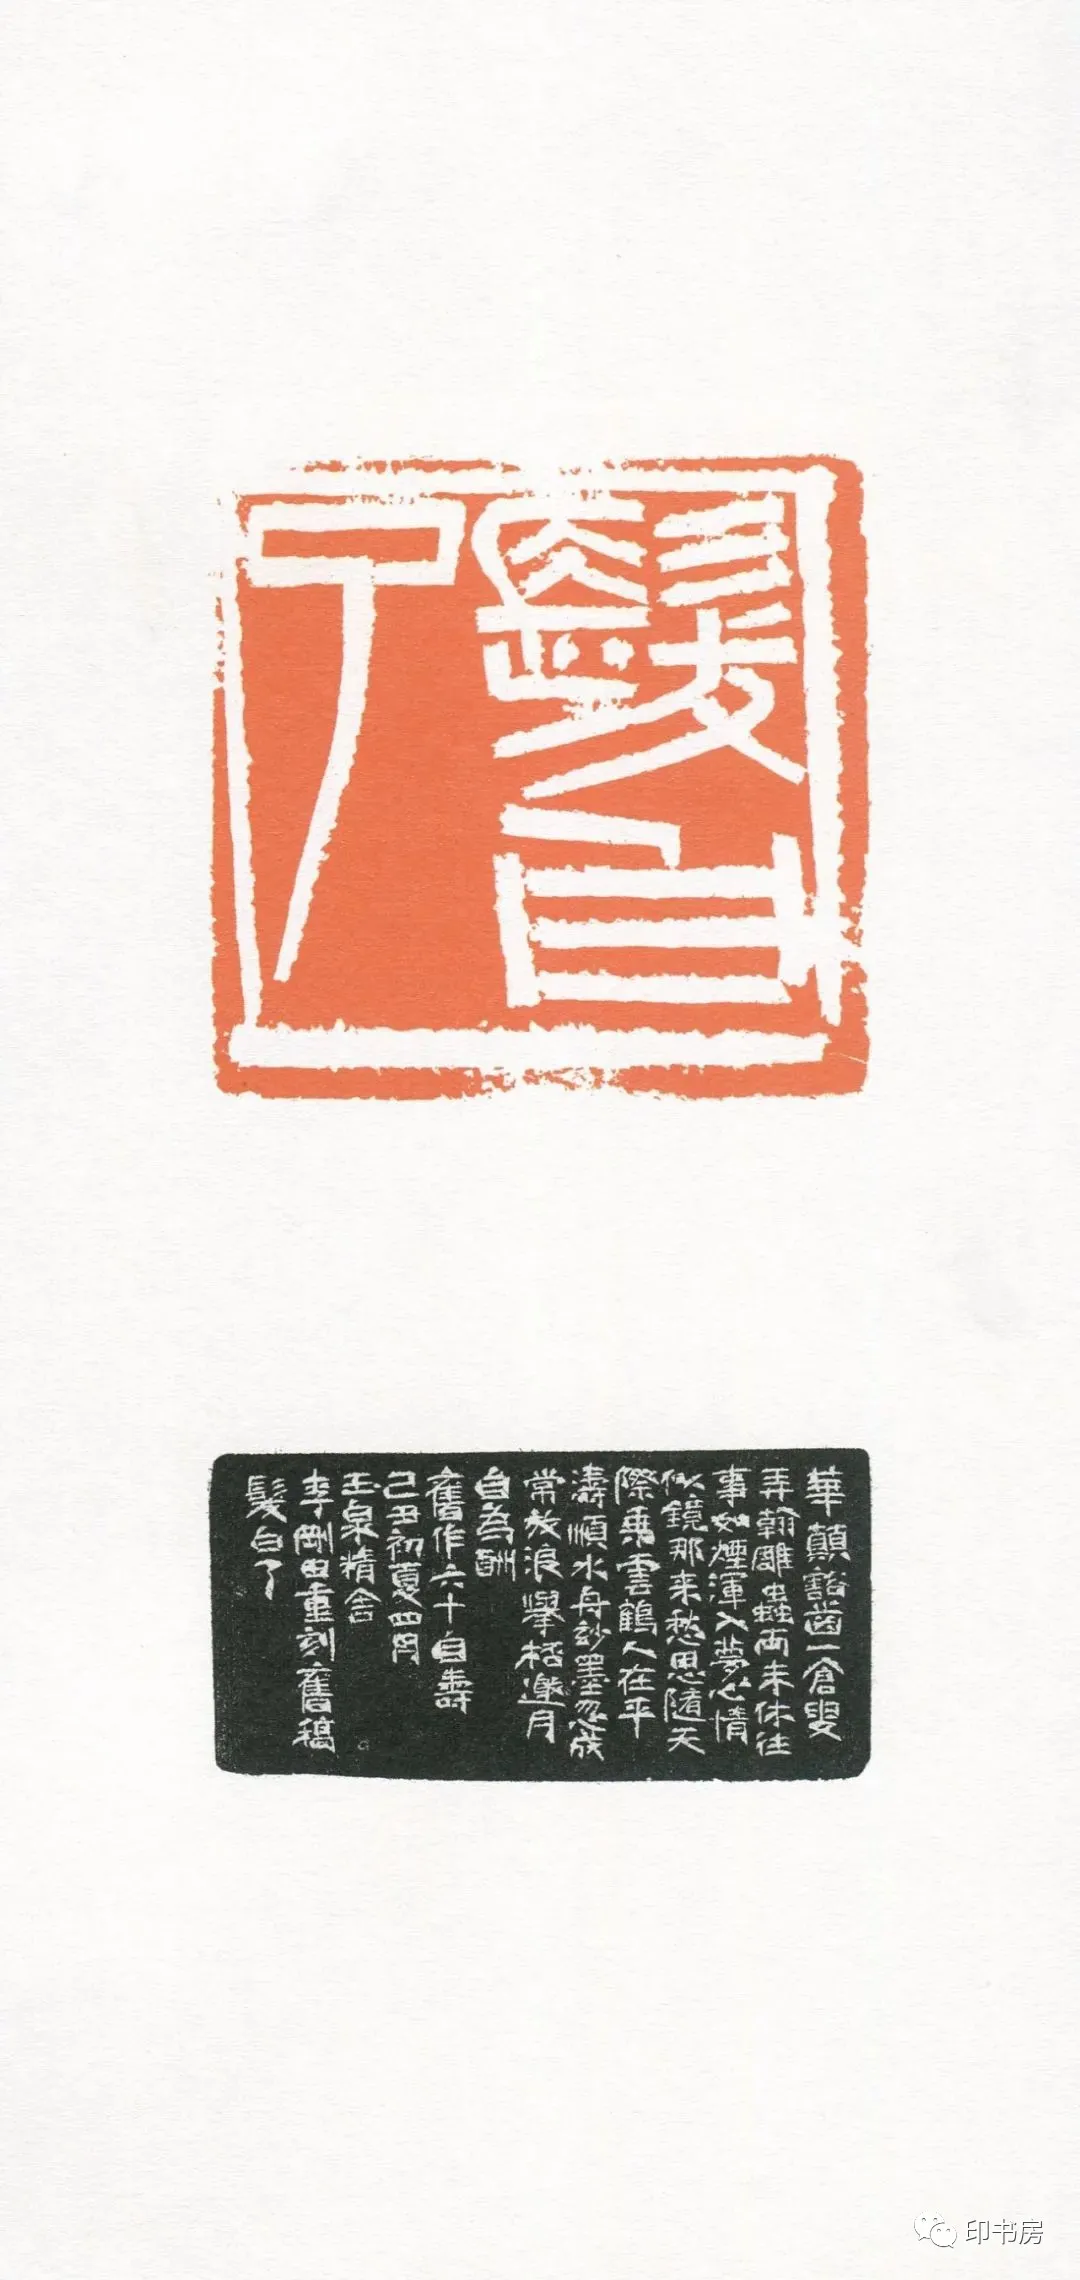 髮白了
華顛豁齒一倉叟
弄翰雕蟲両未休往
事如煙渾入夢心情
似鏡那来愁思隨天
際乗雲鶴人在平
濤順水舟玅墨忽成
常放浪舉桮邀月
自為酬
舊作六十自壽
己丑初夏四月
玉泉精舍
李剛田重刻舊稿
髮白了
印书房